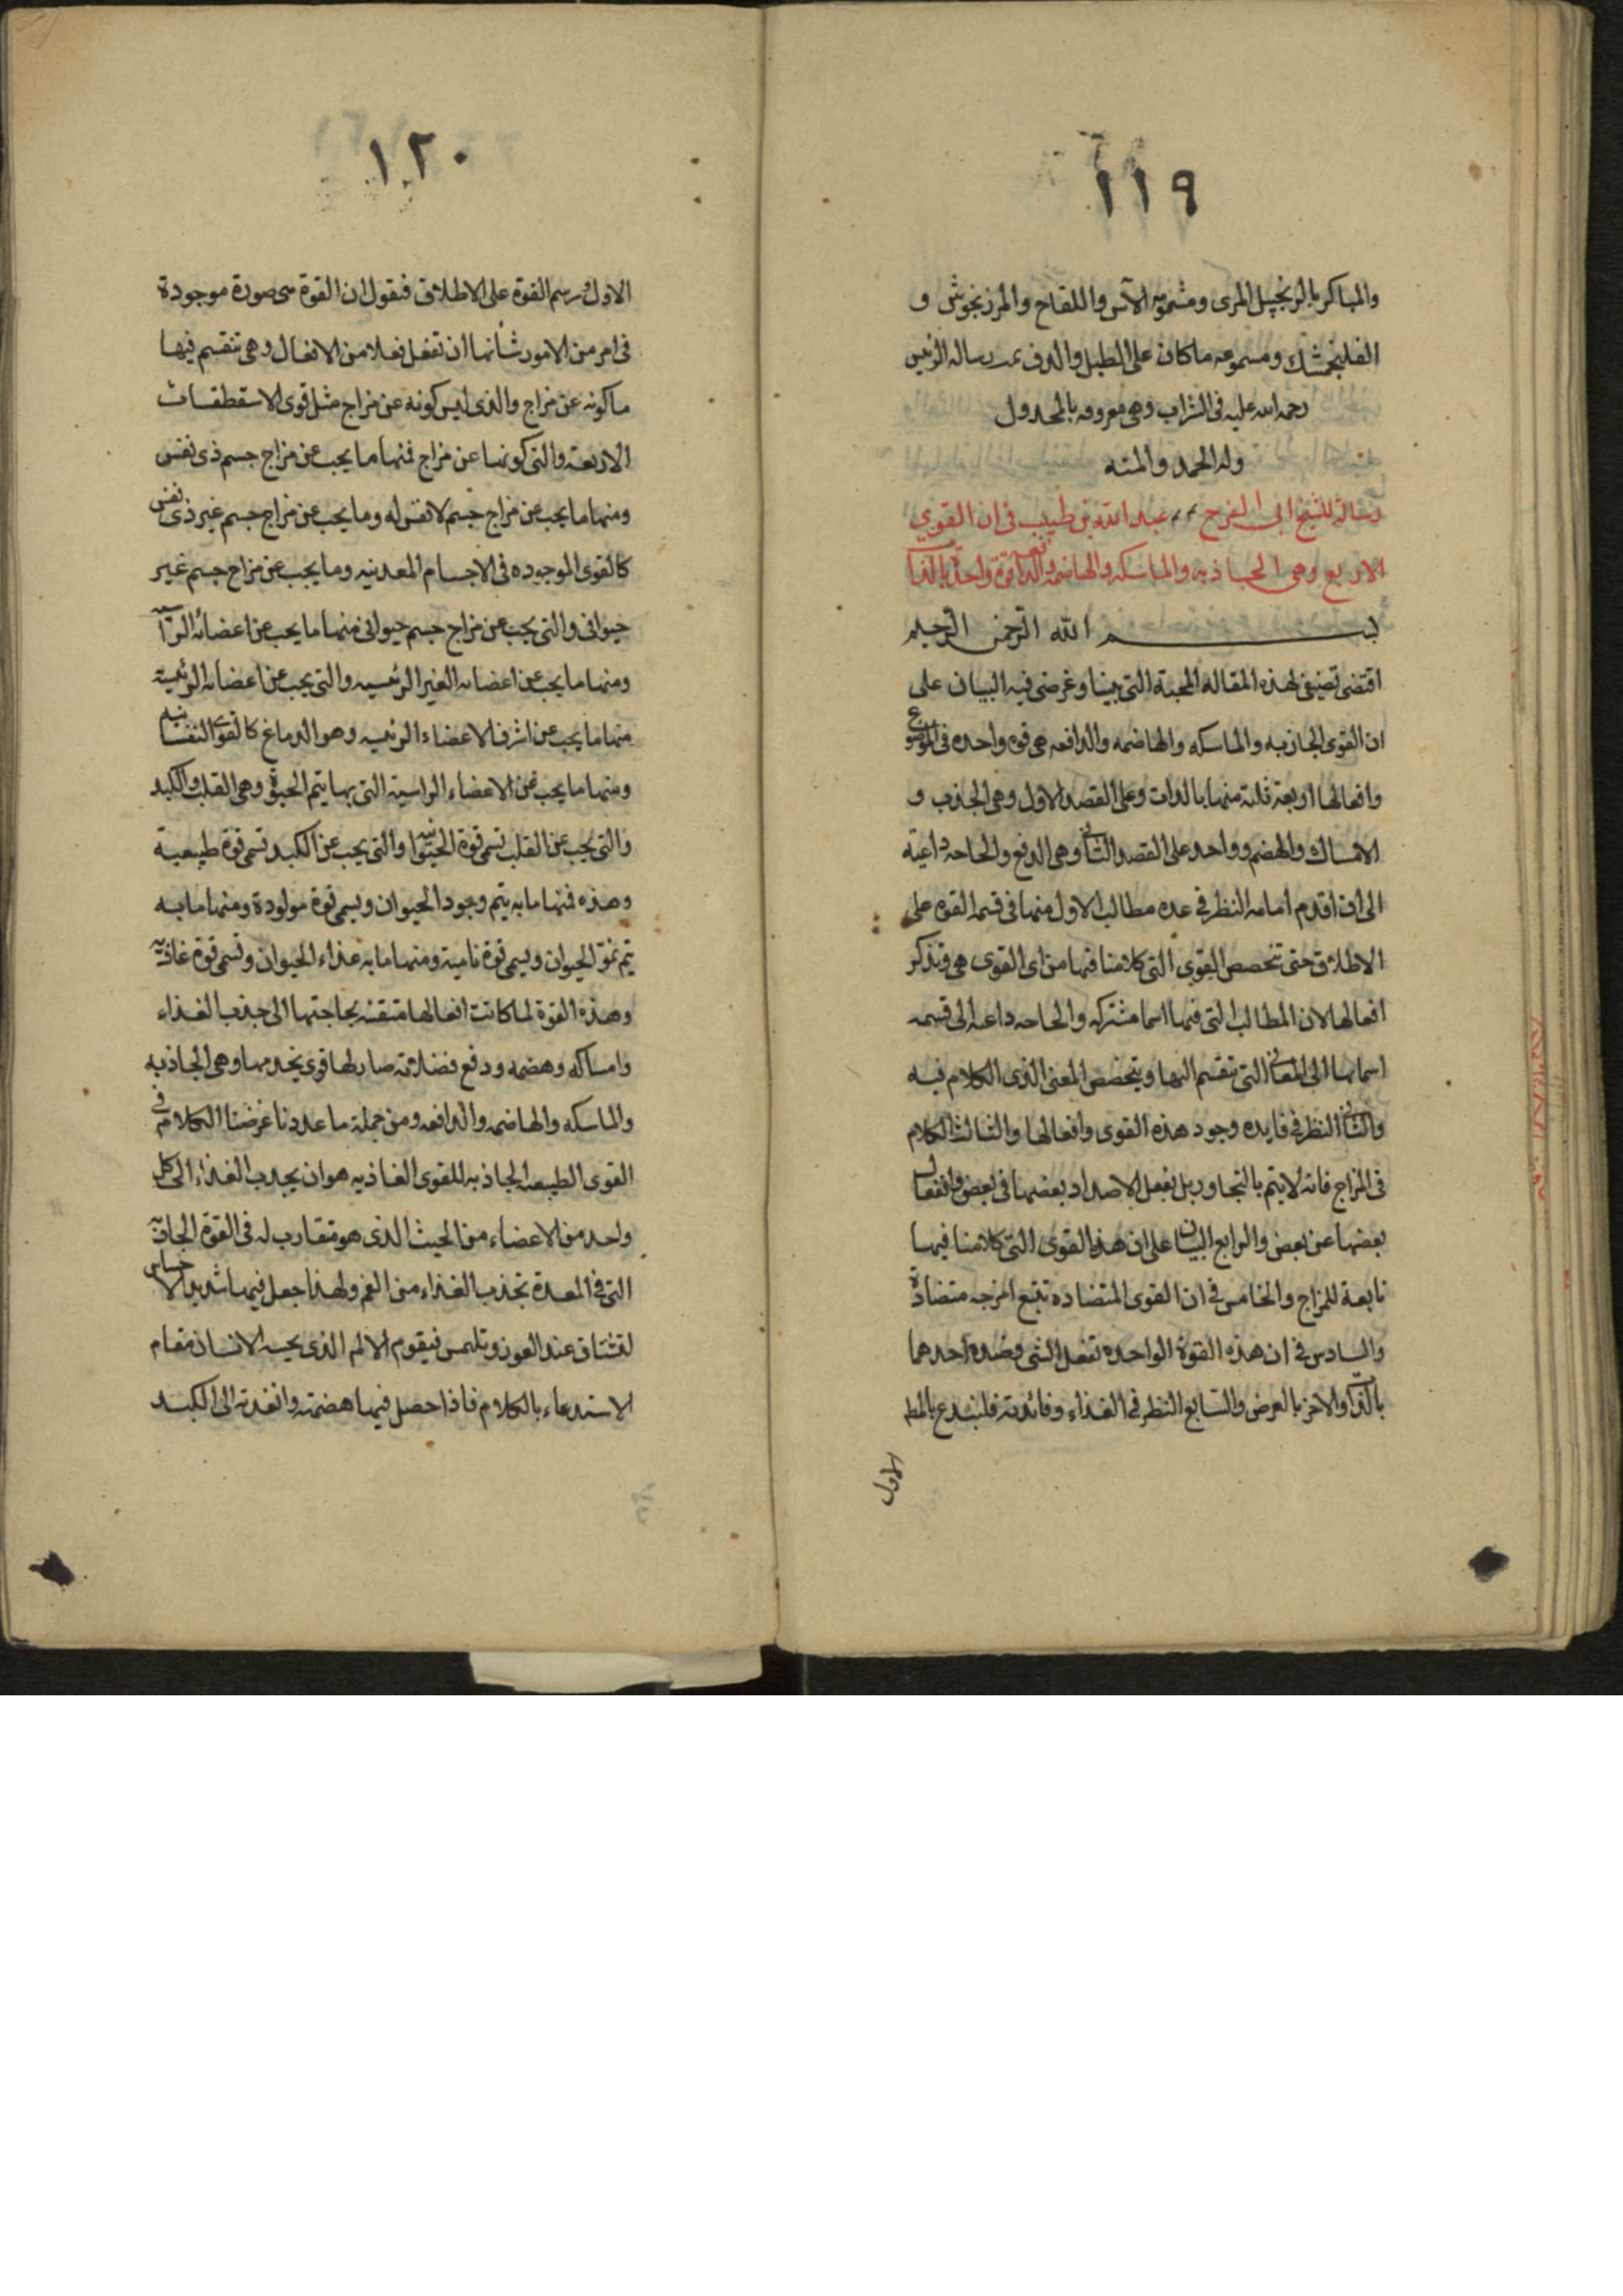 ١١٩
والمباكر بالزنجبيل المرى ومشمومه الآس واللقاح والمرزنجوش و
الفلنجمشك ومسموعه ما كان على الطبل والدف تمت رساله الرئيس
رحمه الله عليه فى الشراب وهى معروفه بالمجدول
وله الحمد والمنه
رسالة للشيخ ابى الفرج عبد الله بن طيب فى ان القوي
الاربع وهى الجاذبه والماسكه والهاضمه والدافعة قوة واحدة بالذات
بسم الله الرحمن الرحيم
اقتضى تصنيفى لهذه المقاله المحبة التى بيننا وغرضى فيه البيان على
ان القوى الجاذبه والماسكه والهاضمه والدافعه هى قوه واحده فى الموضوع
وافعالها اربعة ثلثة منها بالذات وعلى القصد الاول وهى الجذب و
الامساك والهضم وواحد على القصد الثانى وهى الدفع والحاجه داعية
الى ان اقدم امامه النظر فى عده مطالب الاول منها فى قسمه القوه على
الاطلاق حتى تخصص القوى التى كلامنا فيها من اى القوى هى وتذكر
افعالها لان المطالب التى فيها اسما مشتركه والحاجه داعيه الى قسمه
اسمائها الى المعانى التى تنقسم اليها ويتخصص المعنى الذى الكلام فيه
والثانى النظر فى فايده وجود هذه القوى وافعالها والثالث الكلام
فى المزاج فانه لا يتم بالتجاور بل بفعل الاضداد بعضها فى بعض وانفعال
بعضها عن بعض والرابع البيان على ان هذه القوى التى كلامنا فيها
تابعة للمزاج والخامس فى ان القوى المتضاده تتبع امزجه متضادة
والسادس فى ان هذه القوة الواحده تفعل الشى وضده احدهما
بالذات والاخر بالعرض والسابع النظر فى الغذاء وفائدته فلنبتدء بالمط
الاول
١٢٠
الاول ورسم القوة على الاطلاق فنقول ان القوة هى صورة موجودة
فى امر من الامور شأنها ان تفعل فعلا من الافعال وهى تنقسم فيها
ما كونه عن مزاج والذى ليس كونه عن مزاج مثل قوى الاسقطقسات
الاربعة والتى كونها عن مزاج فمنها ما يجب عن مزاج جسم ذى نفس
ومنها ما يجب عن مزاج جسم لا نفس له وما يجب عن مزاج جسم غير ذى نفس
كالقوى الموجوده فى الاجسام المعدنيه وما يجب عن مزاج جسم غير
حيوانى والتى يجب عن مزاج جسم حيوانى منها ما يجب عن اعضائه الرآسيه
ومنها ما يجب عن اعضائه الغير الرئسيه والتى يجب عن اعضائه الرئيسة
منها ما يجب عن اشرف الاعضاء الرئسيه وهو الدماغ كالقوى النفسانيه
ومنها ما يجب عن الاعضاء الراسية التى بها يتم الحيوة وهى القلب والكبد
والتى يجب عن القلب تسمى قوة الحيوانيه والتى يجب عن الكبد تسمى قوة طبيعية
وهذه فمنها ما به يتم وجود الحيوان ويسمى قوة مولودة ومنها ما به
يتم نمو الحيوان ويسمى قوة نامية ومنها ما به غذاء الحيوان وتسمى قوة غاذيه
وهذه القوة لما كانت افعالها متقنه بحاجتها الى جذب الغذاء
وامساكه وهضمه ودفع فضلاته صار لها قوى يخدمها وهى الجاذبه
والماسكه والهاضمه والدافعه ومن جملة ما عددنا غرضنا الكلام فى
القوى الطبيعه الجاذبه للقوى الغاذيه هو ان يجذب الغذاء الى كل
واحد من الاعضاء من الحيث الذى هو متقارب له فى القوة الجاذبه
التى فى المعدة تجذب الغذاء من الفم ولهذا جعل فيها شديد الاحساس
لتشتاق عند العوز وتلتمس فيقوم الالم الذى يحسه الانسان مقام
الاستدعاء بالكلام فاذا حصل فيها هضمته وانفدته الى الكبد